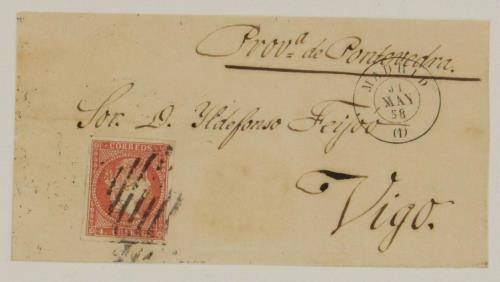 Provª de Pontevedra.
MADRID
31
MAY
58
(1)
Sor. D. Yldefonso Feijoo
Vigo.
CORREOS